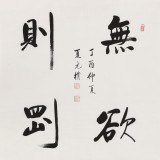 無欲
則剛
丁酉仲夏
夏元撲